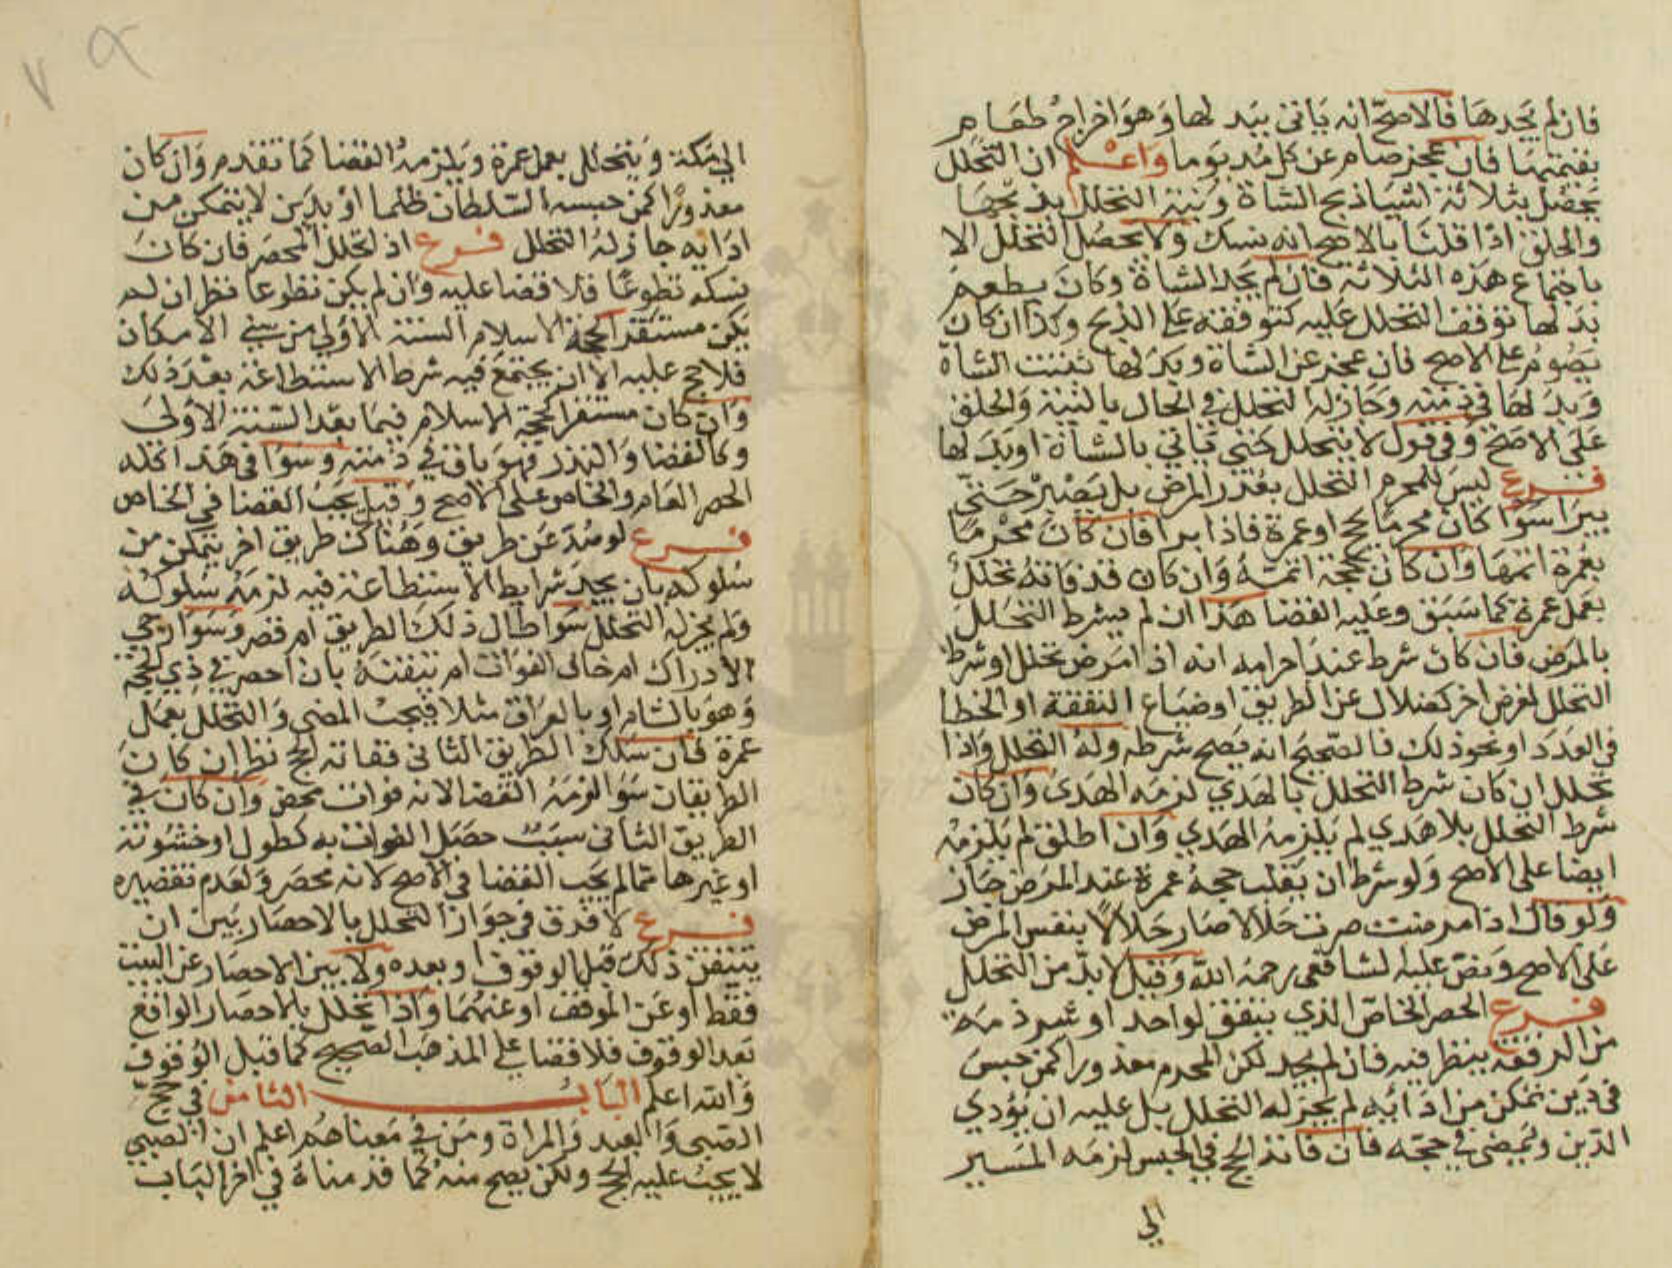 فان لم يجدها فالاصح انه ياتي ببدلها وهو اخراج طعام
بقيمتها فان عجز صام عن كل مد يوما واعلم ان التحلل
يحصل بثلاثة اشيا ذبح الشاة ونية التحلل بذبحها
والحلق اذا قلنا بالاصح انه نسك ولا يحصل التحلل الا
باجتماع هذه الثلاثة فان لم يجد الشاة وكان يطعم
بدلها توقف التحلل عليه كتوقفه على الذبح وكذا ان كان
يصوم على الاصح فان عجز عن الشاة وبدلها ثبتت الشاة
وبدلها في ذمته وجاز له التحلل في الحال بالنية والحلق
على الاصح وفي قول لا يتحلل حتى ياتي بالشاة او بدلها
فرع ليس للمحرم التحلل بعذر المرض بل يصبر حتى
يبرا سوا كان محرما بحج او عمرة فاذا برا فان كان محرما
بعمرة اتمها وان كان بحجة اتمه وان كان قد فاته تحلل
بعمل عمرة كما سبق وعليه القضا هذا ان لم يشرط التحلل
بالمرض فان كان شرط عند احرامه انه اذا مرض تحلل او شرط
التحلل لغرض اخر كضلال عن الطريق او ضياع النفقة او الخطا
في العدد او نحو ذلك فالصحيح انه يصح شرطه وله التحلل واذا
تحلل ان كان شرط التحلل بالهدي لزمه الهدي وان كان
شرط التحلل بلا هدي لم يلزمه الهدي وان اطلق لم يلزمه
ايضا على الاصح ولو شرط ان يقلب حجه عمرة عند المرض جاز
ولو قال اذا مرضت صرت حلالا صار حلالا بنفس المرض
على الاصح ونص عليه الشافعي رحمه الله وقيل لا بد من التحلل
فرع الحصر الخاص الذي يتفق لواحد او شرذمة
من الرفقة ينظر فيه فان لم يجد لكن المحرم معذورا كمن حبس
في دين تمكن من ادائه لم يجز له التحلل بل عليه ان يؤدي
الدين ويمضي في حجه فان فاته الحج في الحبس لزمه المسير
الي
الي مكة ويتحلل بعمل عمرة ويلزمه القضا كما تقدم وان كان
معذورا كمن حبسه السلطان ظلما او بدين لا يتمكن من
ادايه جاز له التحلل فرع اذ تحلل المحصر فان كان
نسكه تطوعا فلا قضا عليه وان لم يكن تطوعا نظر ان لم
يكن مستقرا كحجة الاسلام السنة الاولي من سني الامكان
فلا حج عليه الا ان يجتمع فيه شرط الاستطاعة بعد ذلك
وان كان مستقرا كحجة الاسلام فيما بعد السنة الاولى
وكالقضا والنذر فهو باق في ذمته وسوا في هذا كله
الحصر العام والخاص على الاصح وقيل يجب القضا في الخاص
فرع لو صد عن طريق وهناك طريق اخر يتمكن من
سلوكه بان يجد شرايط الاستطاعة فيه لزمه سلوكه
ولم يجز له التحلل سوا طال ذلك الطريق ام قصر وسوا رجي
الادراك ام خاف الفوات ام تيقنه بان احصر في ذي الحجة
وهو بالشام او بالعراق مثلا فيجب المضي والتحلل بعمل
عمرة فان سلك الطريق الثاني ففاته الحج نظر ان كان
الطريقان سوا لزمه القضا لانه فوات محض وان كان في
الطريق الثاني سبب حصل الفوات به كطول او خشونة
او غيرها مما لم يجب القضا في الاصح لانه محصر ولعدم تقصيره
فرع لا فرق في جواز التحلل بالاحصار بين ان
يتفق ذلك قبل الوقوف وبعده ولا بين الاحصار عن البيت
فقط او عن الموقف او عنهما واذا تحلل بالاحصار الواقع
بعد الوقوف فلا قضا على المذهب الصحيح كما قبل الوقوف
والله اعلم الباب الثامن في حج
الصبي والعبد والمراة ومن في معناهم اعلم ان الصبي
لا يجب عليه الحج ولكن يصح منه كما قدمناه في اخر الباب